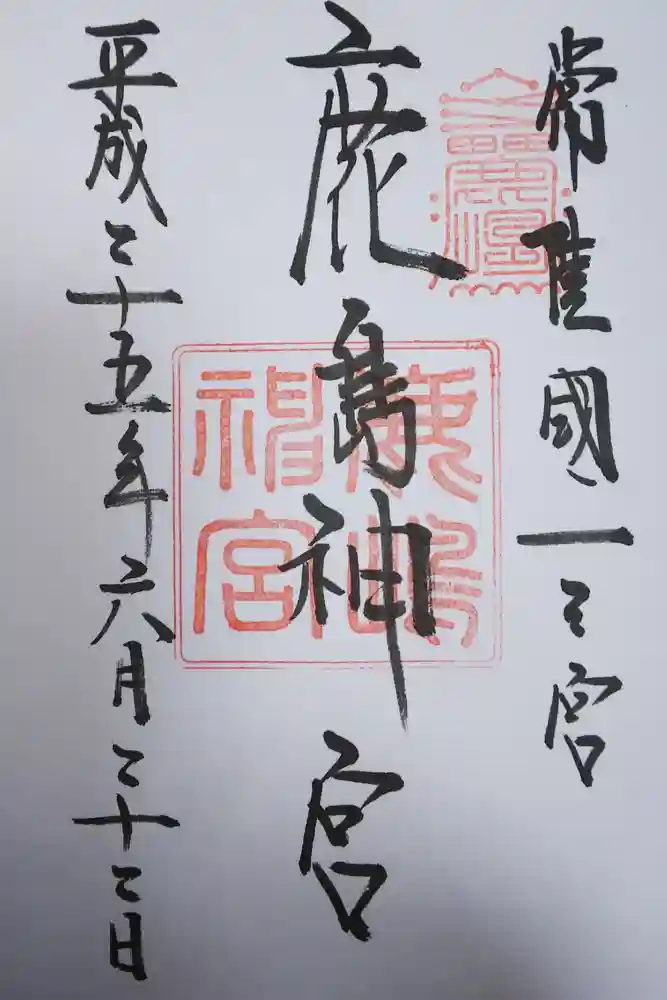 常陸國一之宮
鹿島神宮
平成二十五年六月二十二日
鹿嶋
神宮